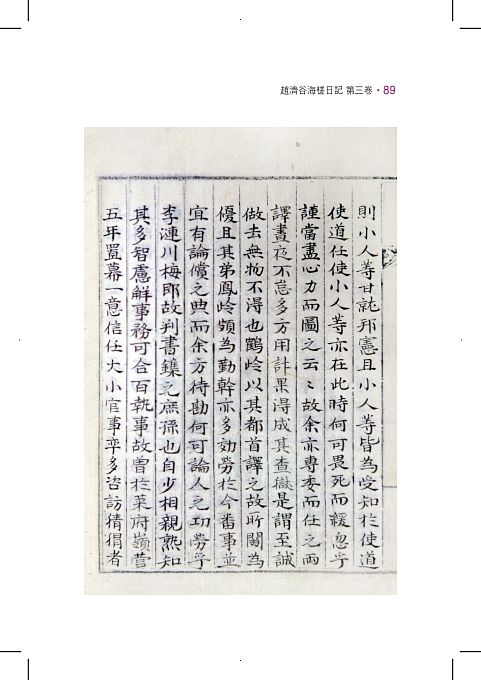 趙濟谷海槎日記 第三卷 · 89
則小人等甘就邦憲且小人等皆為受知於使道
使道任使小人等亦在此時何可畏死而緩忽乎
謹當盡心力而圖之云〻故余亦專委而任之兩
譯晝夜不怠多方用計果得成其查嶽是謂至誠
做去無物不得也鶴岭以其都首譯之故所關為
優且其弟鳳岭領為勤幹亦多効勞於今番事並
宜有論償之典而余方待勘何可論人之功勞乎
李漣川梅耶故判書鏶之庶孫也自少相親熟知
其多智慮解事務可合百執事故曽於菜府嶺營
五年置幕一意信任大小官事率多咨訪猜狷者